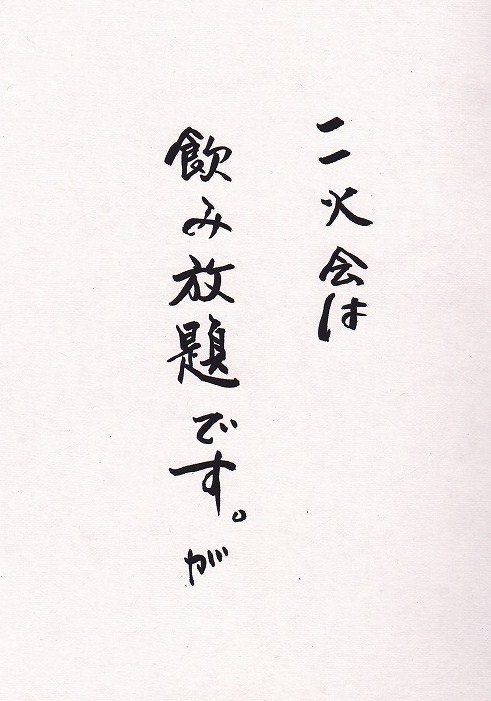 二火会は
飲み放題です。が